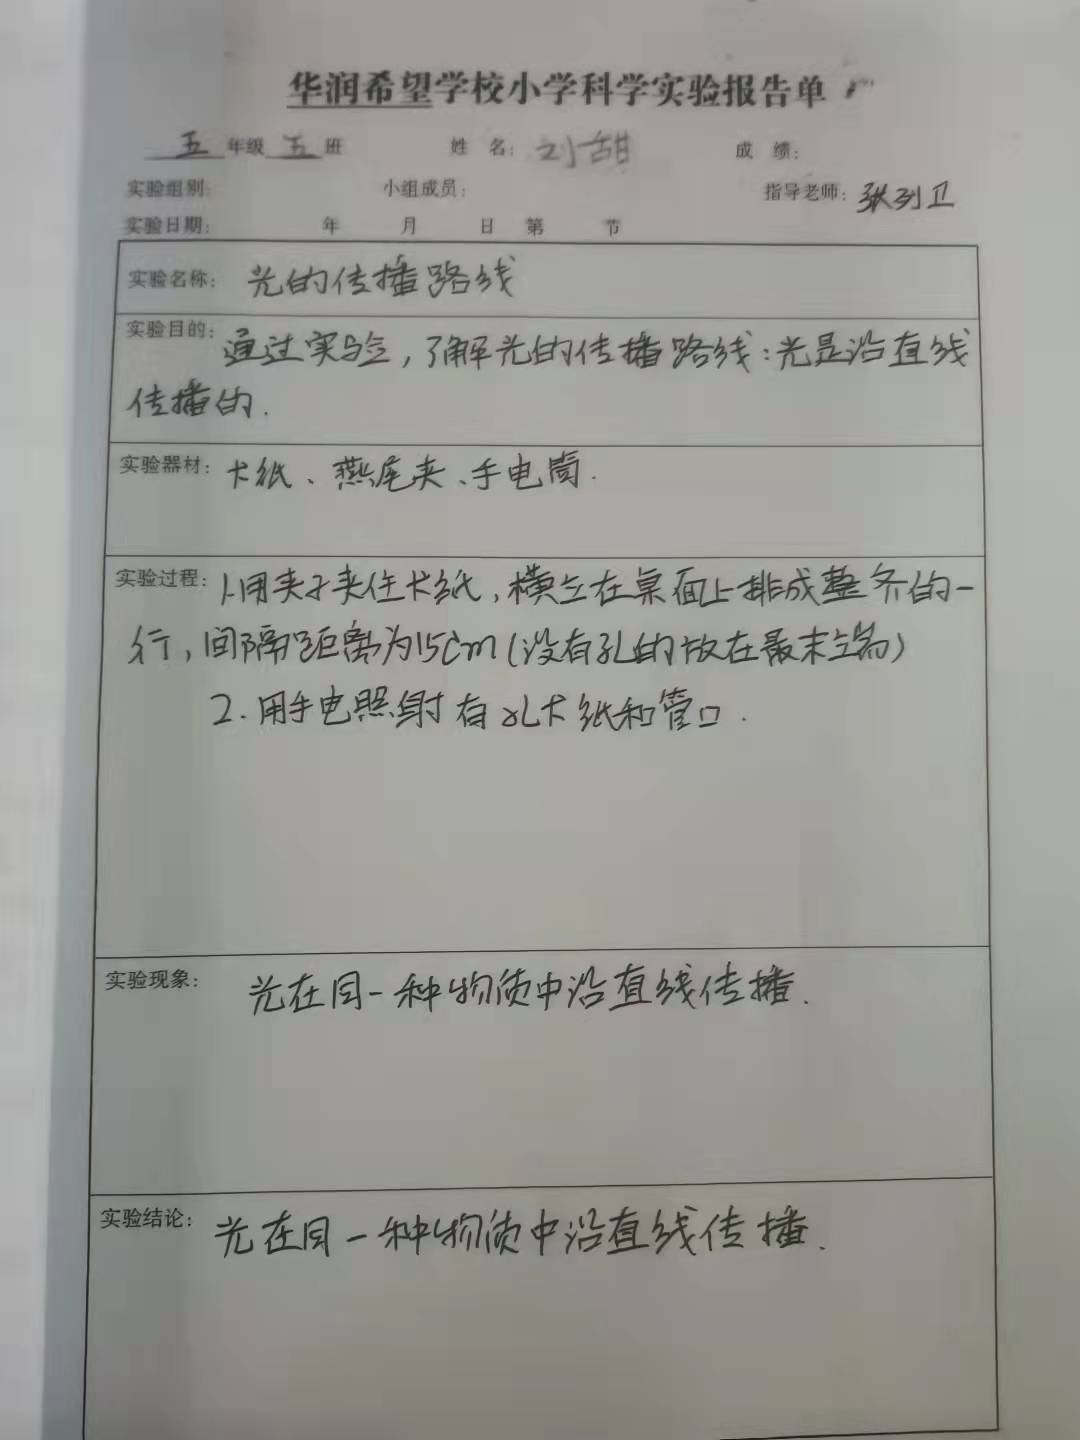 华润希望学校小学科学实验报告单
五年级五班 姓 名：刘甜 成 绩：
实验组别： 小组成员： 指导老师：张列卫
实验日期： 年 月 日 第 节
实验名称： 光的传播路线
实验目的：通过实验，了解光的传播路线：光是沿直线
传播的.
实验器材：卡纸、燕尾夹、手电筒.
实验过程：1.用夹子夹住卡纸，横立在桌面上排成整齐的一
行，间隔距离为15cm(没有孔的放在最末端)
2.用手电照射有孔卡纸和管口.
实验现象： 光在同一种物质中沿直线传播.
实验结论：光在同一种物质中沿直线传播.